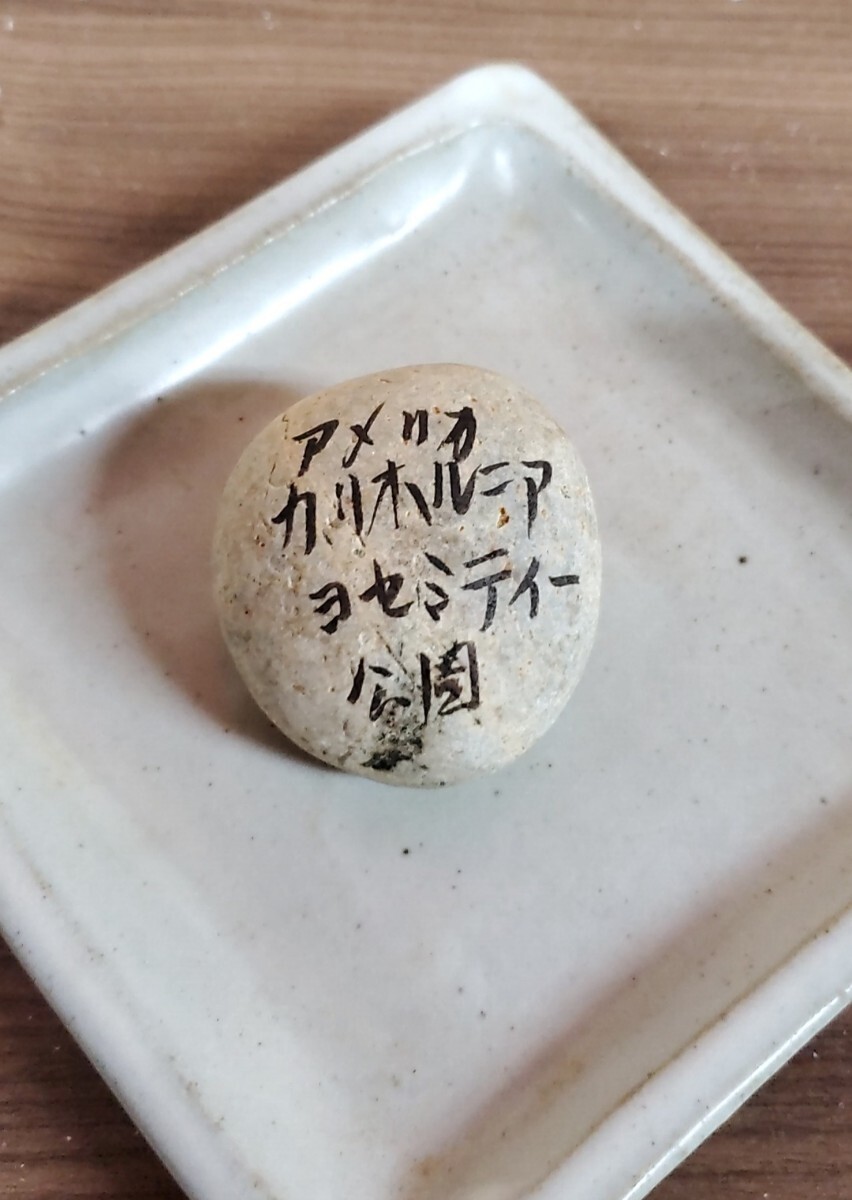 アメリカ
カリホルニア
ヨセミティー
公園